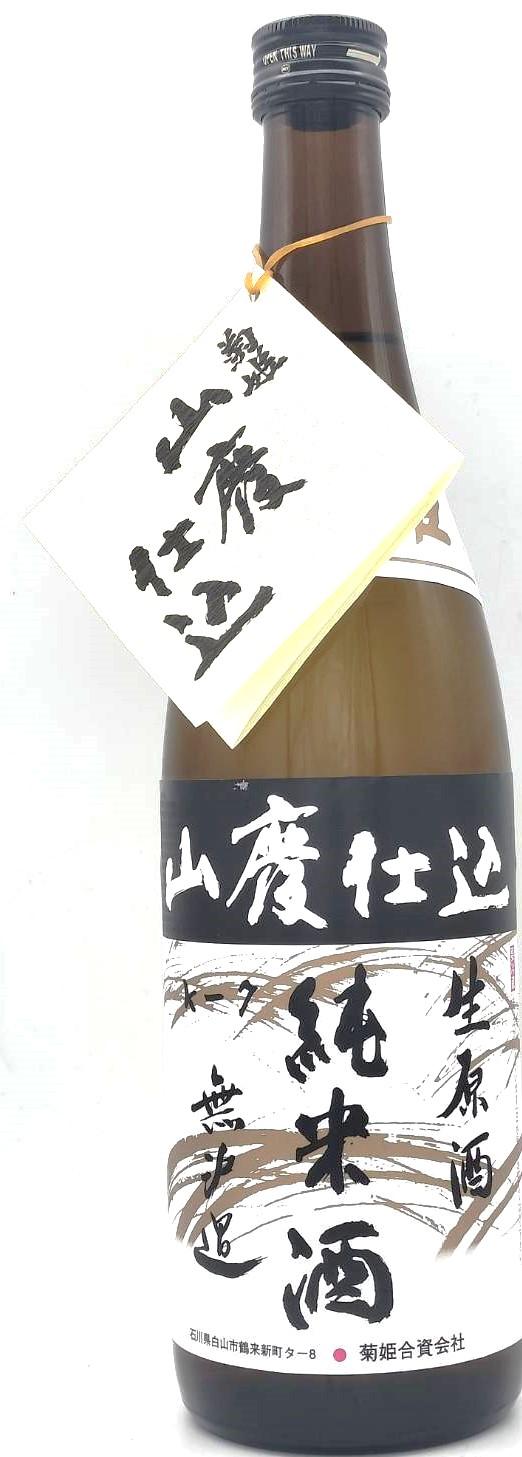 OPEN THIS WAY
菊姫
山廃仕込
山廃仕込
生原酒
純米酒
K-7
無濾過
石川県白山市鶴来新町タ-8 ● 菊姫合資会社